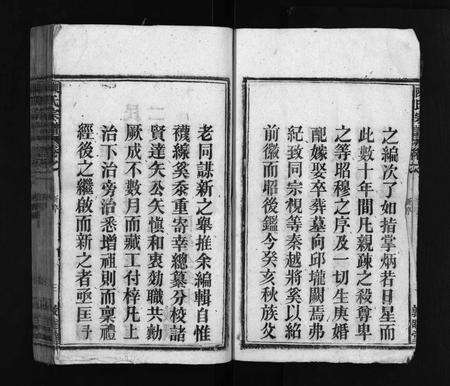 之編次了如指掌炳若日星而
此數十年間凡親疎之殺尊卑
之等昭穆之序及一切生庚婚
配嫁娶卒葬墓向邱壠闕焉弗
紀致同宗視等秦越將奚以紹
前徽而昭後鑑今癸亥秋族父
老同謀新之舉推余編輯自惟
襪線奚黍重寄幸總纂分校諸
賢達矢公矢愼和衷効職共勷
厥成不數月而藏工付梓凡上
治下治旁治悉增補則而稟禮
經後之繼啟而新之者亟匡予